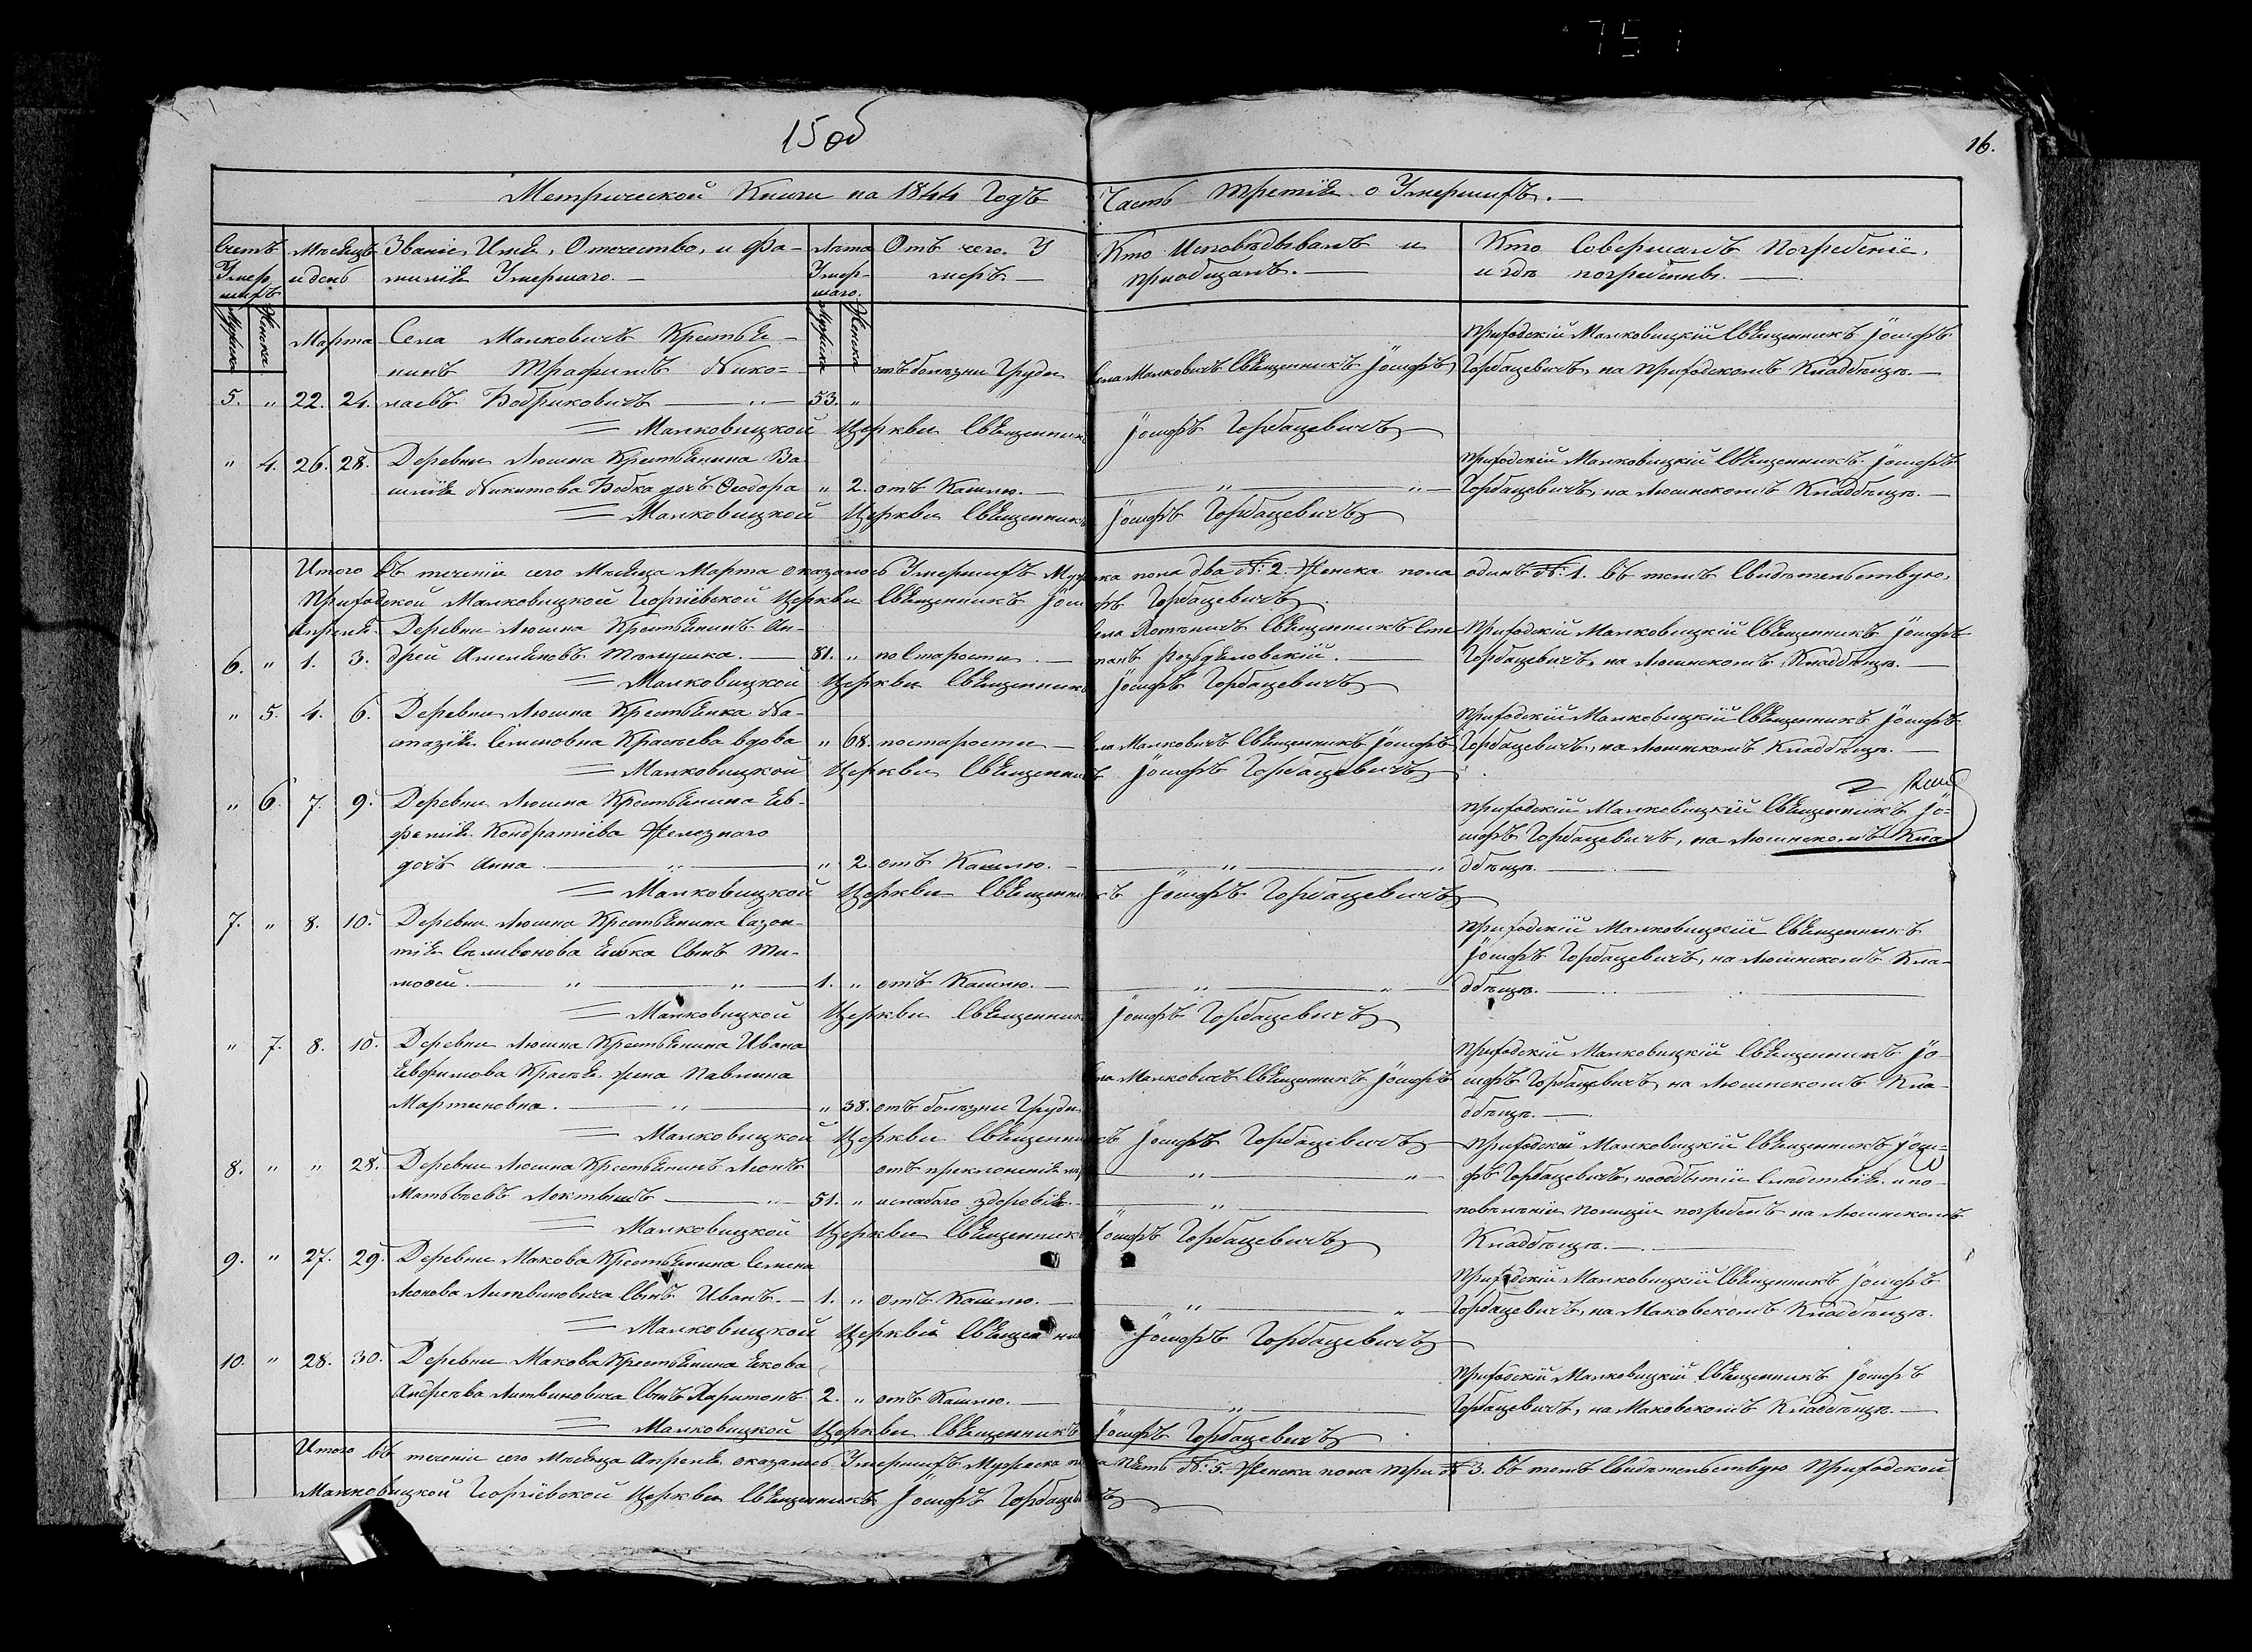 15об
16.
Метрической Книги на 1844 Годъ Часть третія о Умершихъ.
Счетъ Умершихъ
Мѣсяцъ и день
Званіе, Имя, Отечество, и Фа-
милія Умершаго.
Лѣта Умер-
шаго.
Отъ чего У
меръ.
Кто Исповѣдывалъ и
приобщалъ.
Кто Совершалъ Погребеніе,
и гдѣ погребены.
Мужска Женска
Марта
Мужска Женска
Села Малковичъ Крестья-
нинъ Трафимъ Нико-
5. " 22. 24. лаевъ Бобриковичъ 53. "
отъ болѣзни Груди
Села Малковичъ Священникъ Іосифъ
Приходскій Малковицкій Священникъ Іосифъ
Горбацевичъ, на Приходскомъ Кладбѣщѣ.
Малковицкой Церкви Священникъ Іосифъ Горбацевичъ
" 4. 26. 28. Деревни Люшна Крестьянина Ва
силія Никитова Бобка дочъ Ѳеодора " 2. отъ Кашлю.
Приходскій Малковицкій Священникъ Іосифъ
Горбацевичъ, на Люшнскомъ Кладбѣщѣ.
Малковицкой Церкви Священникъ Іосифъ Горбацевичъ
Итого въ теченіи сего Мѣсяца Марта оказалось Умершихъ Мужска пола два №: 2. Женска пола одинъ №: 1. въ томъ Свидѣтельствую,
Приходской Малковицкой Георгіевской Церкви Священникъ Іосифъ Горбацевичъ
Апреля. Деревни Люшна Крестьянинъ Ан-
6. " 1. 3. дрей 81. " по Старости.
Священникъ Сте
панъ
Приходскій Малковицкій Священникъ Іосифъ
Горбацевичъ, на Люшнскомъ Кладбѣщѣ.
Малковицкой Церкви Священникъ Іосифъ Горбацевичъ
" 5. 4. 6. Деревни Люшна Крестьянка На-
стазія Семеновна Красѣева вдова " 68. по старости
Села Малковичъ Священникъ Іосифъ
Приходскій Малковицкій Священникъ Іосифъ
Горбацевичъ, на Люшнскомъ Кладбѣщѣ.
Малковицкой Церкви Священникъ Іосифъ Горбацевичъ
" 6. 7. 9. Деревни Люшна Крестьянина Ев-
фимія Кондратіева Железнаго
дочъ Анна " 2. отъ Кашлю.
Приходскій Малковицкій Священникъ Іо-
сифъ Горбацевичъ, на Люшнскомъ Кла
дбѣщѣ.
Малковицкой Церкви Священникъ Іосифъ Горбацевичъ
7. " 8. 10. Деревни Люшна Крестьянина Сазон-
тія Селивонова Сынъ Ти-
моѳей. 1. " отъ Кашлю.
Приходскій Малковицкій Священникъ
Іосифъ Горбацевичъ, на Люшнскомъ Кла-
дбѣщѣ.
Малковицкой Церкви Священникъ Іосифъ Горбацевичъ
" 7. 8. 10. Деревни Люшна Крестьянина Ивана
Евфимова Красѣя жена Павлина
Мартиновна. " 38. отъ болѣзни Груди
Села Малковичъ Священникъ Іосифъ
Приходскій Малковицкій Священникъ Іо-
сифъ Горбацевичъ, на Люшнскомъ Кла-
дбѣщѣ.
Малковицкой Церкви Священникъ Іосифъ Горбацевичъ
8. " " 28. Деревни Люшна Крестьянинъ Леонъ
Матвѣевъ Локтышъ 51. " отъ преклоненія
и слабаго здоровія.
Приходскій Малковицкій Священникъ Іоси-
фъ Горбацевичъ, по отбытіи Слѣдствія и по-
повелѣнію Полиціи погребенъ на Люшнскомъ
Кладбѣщѣ.
Малковицкой Церкви Священникъ Іосифъ Горбацевичъ
9. " 27. 29. Деревни Макова Крестьянина Семена
Леонова Литвиновича Сынъ Иванъ. 1. " отъ Кашлю.
Приходскій Малковицкій Священникъ Іосифъ
Горбацевичъ, на Маковскомъ Кладбѣщѣ.
Малковицкой Церкви Священникъ Іосифъ Горбацевичъ
10. " 28. 30. Деревни Макова Крестьянина Якова
Андреева Литвиновича Сынъ Харитонъ 2. " отъ Кашлю.
Приходскій Малковицкій Священникъ Іосифъ
Горбацевичъ, на Маковскомъ Кладбѣщѣ.
Малковицкой Церкви Священникъ Іосифъ Горбацевичъ
Итого въ теченіи сего Мѣсяца Апреля оказалось Умершихъ Мужеска пола пять №: 5. Женска пола три № 3. въ томъ Свидѣтельствую Приходской
Малковицкой Георгіевской Церкви Священникъ Іосифъ Горбацевичъ